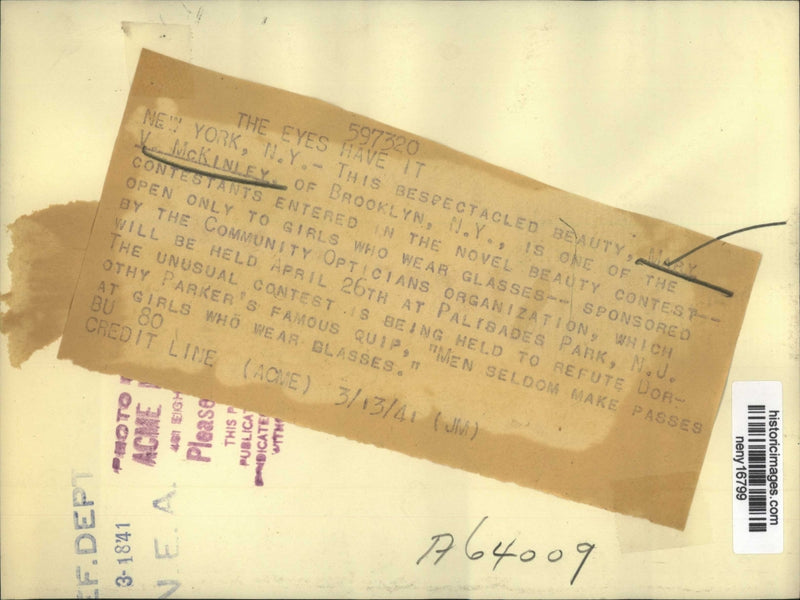 597320
THE EYES HAVE IT
NEW YORK, N.Y.- THIS BESPECTACLED BEAUTY, MARY
V. MCKINLEY, OF BROOKLYN, N.Y., IS ONE OF THE
CONTESTANTS ENTERED IN THE NOVEL BEAUTY CONTEST--
OPEN ONLY TO GIRLS WHO WEAR GLASSES-- SPONSORED
BY THE COMMUNITY OPTICIANS ORGANIZATION, WHICH
WILL BE HELD APRIL 26TH AT PALISADES PARK, N.J.
THE UNUSUAL CONTEST IS BEING HELD TO REFUTE DOR-
OTHY PARKER'S FAMOUS QUIP, "MEN SELDOM MAKE PASSES
AT GIRLS WHO WEAR GLASSES."
BU 80
CREDIT LINE (ACME) 3/13/41 (JM)
PHOTO
ACME
461 EIGH
Please
THIS P
PUBLICA
SYNDICATE
WITH
EF. DEPT
3-18'41
N.E.A.
A64009
historicimages.com
neny16799